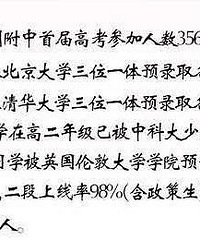 附中首届高考参加人数356
北京大学三位一体预录取
清华大学三位一体预录取
学在高二年级已被中科大少
同学被英国伦敦大学学院预
二段上线率98%(含政策生
人。